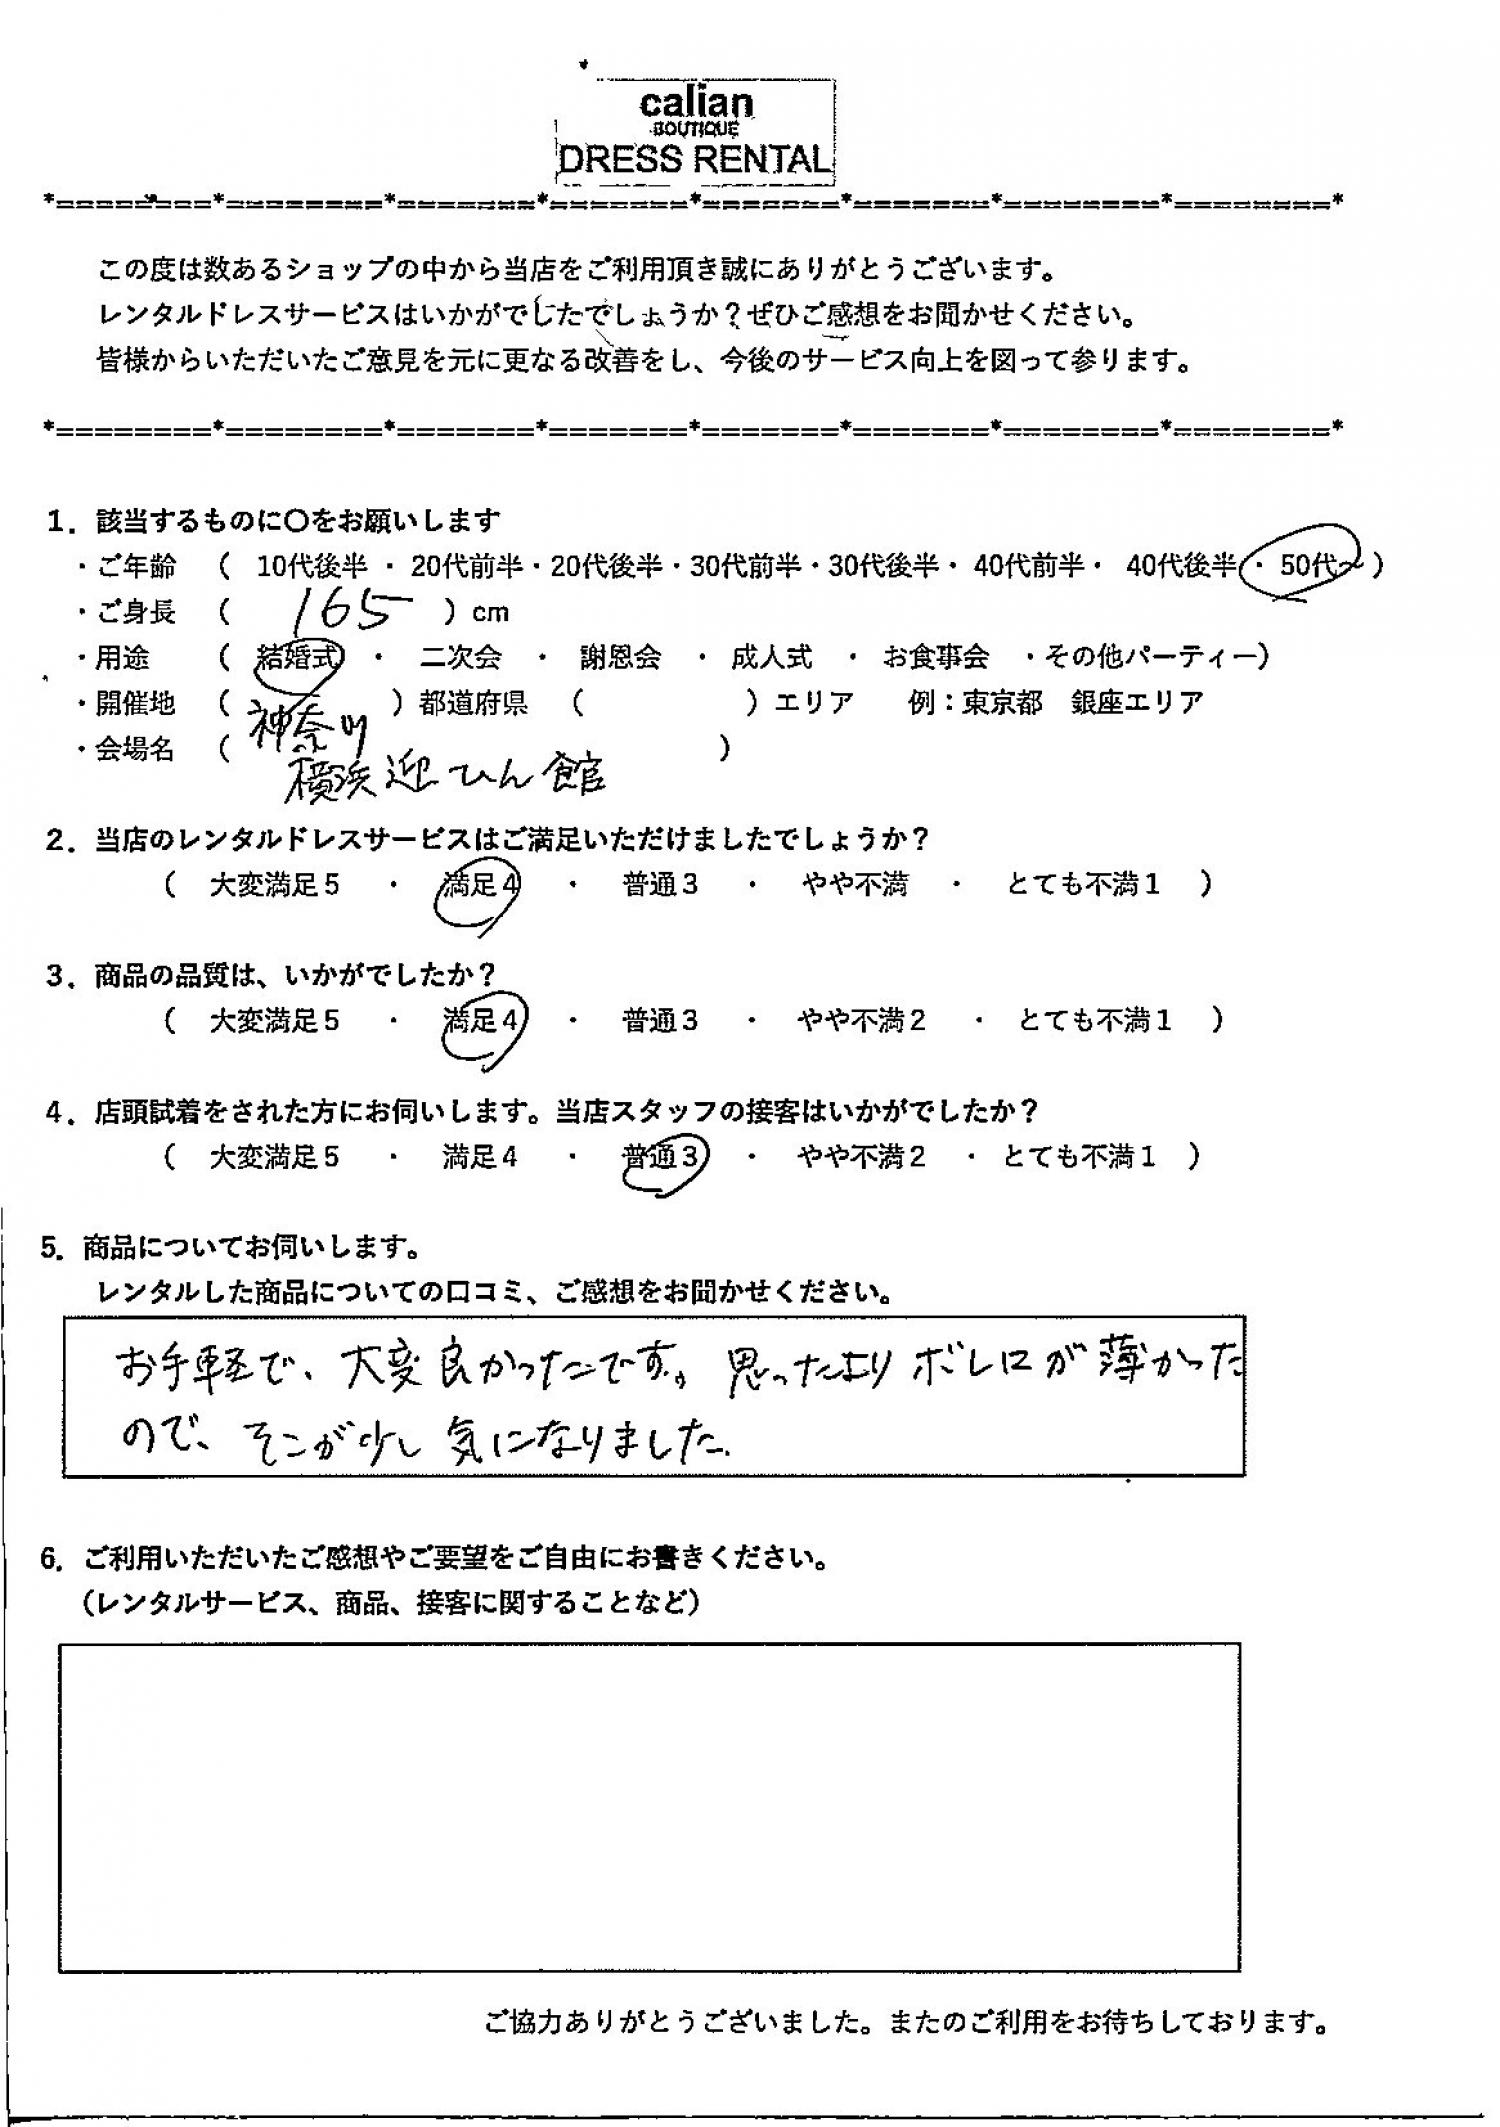 calian
BOUTIQUE
DRESS RENTAL
*========*========*=======*=======*=======*=======*========*========*
この度は数あるショップの中から当店をご利用頂き誠にありがとうございます。
レンタルドレスサービスはいかがでしたでしょうか？ぜひご感想をお聞かせください。
皆様からいただいたご意見を元に更なる改善をし、今後のサービス向上を図って参ります。
*========*========*=======*=======*=======*=======*========*========*
1．該当するものに〇をお願いします
・ご年齢 （ 10代後半 ・ 20代前半・20代後半・30代前半・30代後半・ 40代前半・ 40代後半 ・ 50代～ ）
・ご身長 （ 165 ）cm
・用途 （ 結婚式 ・ 二次会 ・ 謝恩会 ・ 成人式 ・ お食事会 ・その他パーティー）
・開催地 （ 神奈川 ）都道府県 （ ）エリア 例：東京都 銀座エリア
・会場名 （ 横浜迎ひん館 ）
2．当店のレンタルドレスサービスはご満足いただけましたでしょうか？
（ 大変満足５ ・ 満足４ ・ 普通３ ・ やや不満 ・ とても不満１ ）
3．商品の品質は、いかがでしたか？
（ 大変満足５ ・ 満足４ ・ 普通３ ・ やや不満２ ・ とても不満１ ）
4．店頭試着をされた方にお伺いします。当店スタッフの接客はいかがでしたか？
（ 大変満足５ ・ 満足４ ・ 普通３ ・ やや不満２ ・ とても不満１ ）
5．商品についてお伺いします。
レンタルした商品についての口コミ、ご感想をお聞かせください。
お手軽で、大変良かったです。思ったよりボレロが薄かった
ので、そこが少し気になりました.
6．ご利用いただいたご感想やご要望をご自由にお書きください。
（レンタルサービス、商品、接客に関することなど）
ご協力ありがとうございました。またのご利用をお待ちしております。